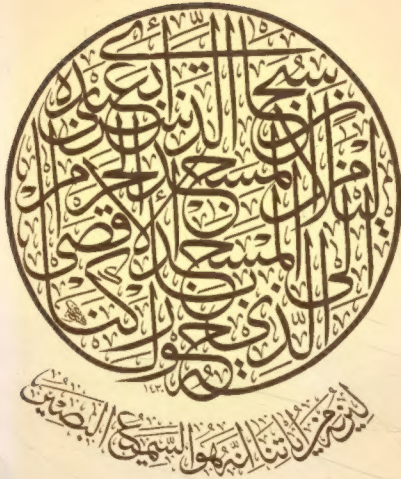 سبحان الذي أسرى بعبده
ليلا من المسجد الحرام
إلى المسجد الأقصى
الذي باركنا حوله
١٤٣٠
لنريه من آياتنا إنه هو السميع البصير